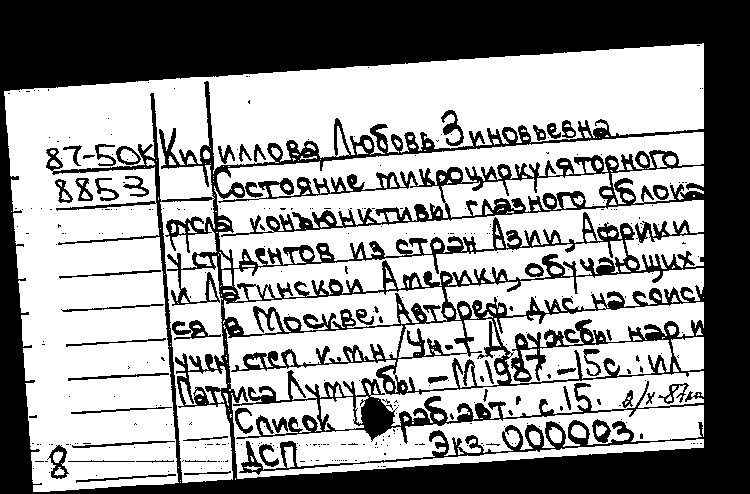 87-50К Кириллова, Любовь Зиновьевна.
8853 Состояние микроциркуляторного
русла конъюнктивы глазного яблока
у студентов из стран Азии, Африки
и Латинской Америки, обучающих-
ся в Москве: Автореф. дис. на соиск
учен. степ. к.м.н. / Ун-т Дружбы нар. и
Патриса Лумумбы. – М. 1987. – 15с. : ил.
Список раб. авт.: с. 15.
8 ДСП Экз. 000003.